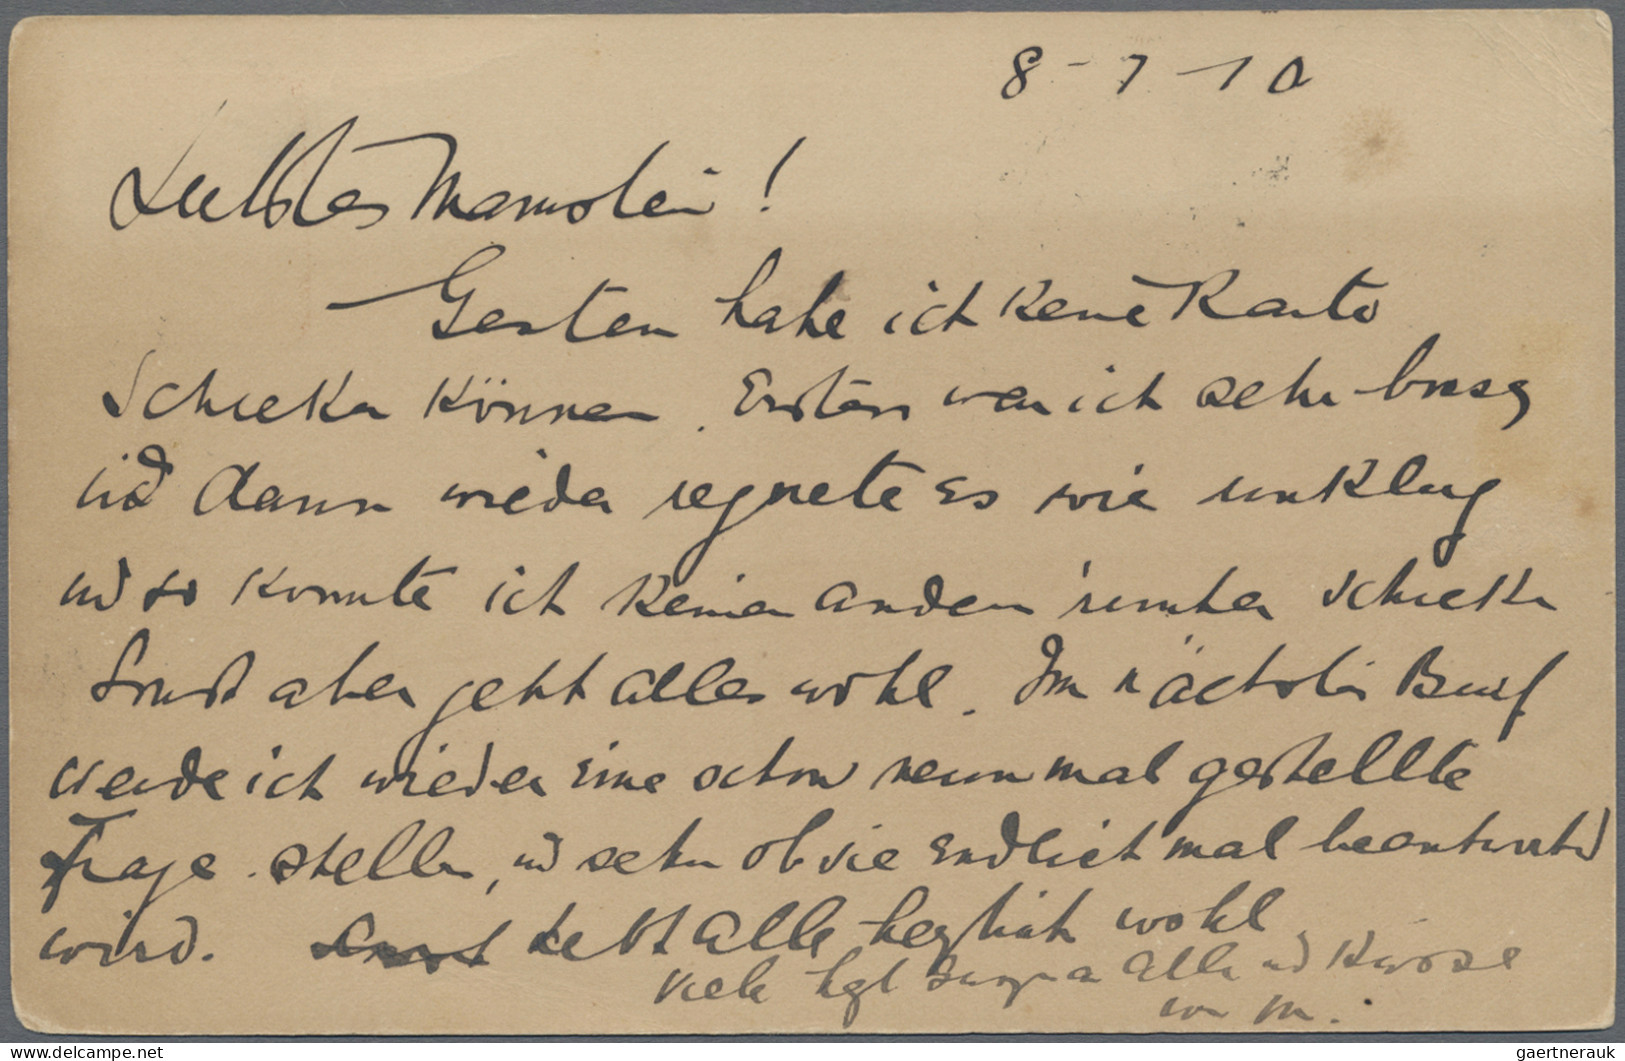 8-7-10
Liebstes Mamslein!
Gestern habe ich keine Karte
schicken können. Erstens war ich sehr busy
und dann wieder regnete es wie unklug
und so konnte ich keinen andern runter schicken
Sonst aber geht alles wohl. Im nächsten Brief
werde ich wieder eine schon neun mal gestellte
Frage stellen, und sehen ob sie endlich mal beantwortet
wird. Lebt alle herzlich wohl
Viele hzl alle und Küsse
von M.
gaertnerauk